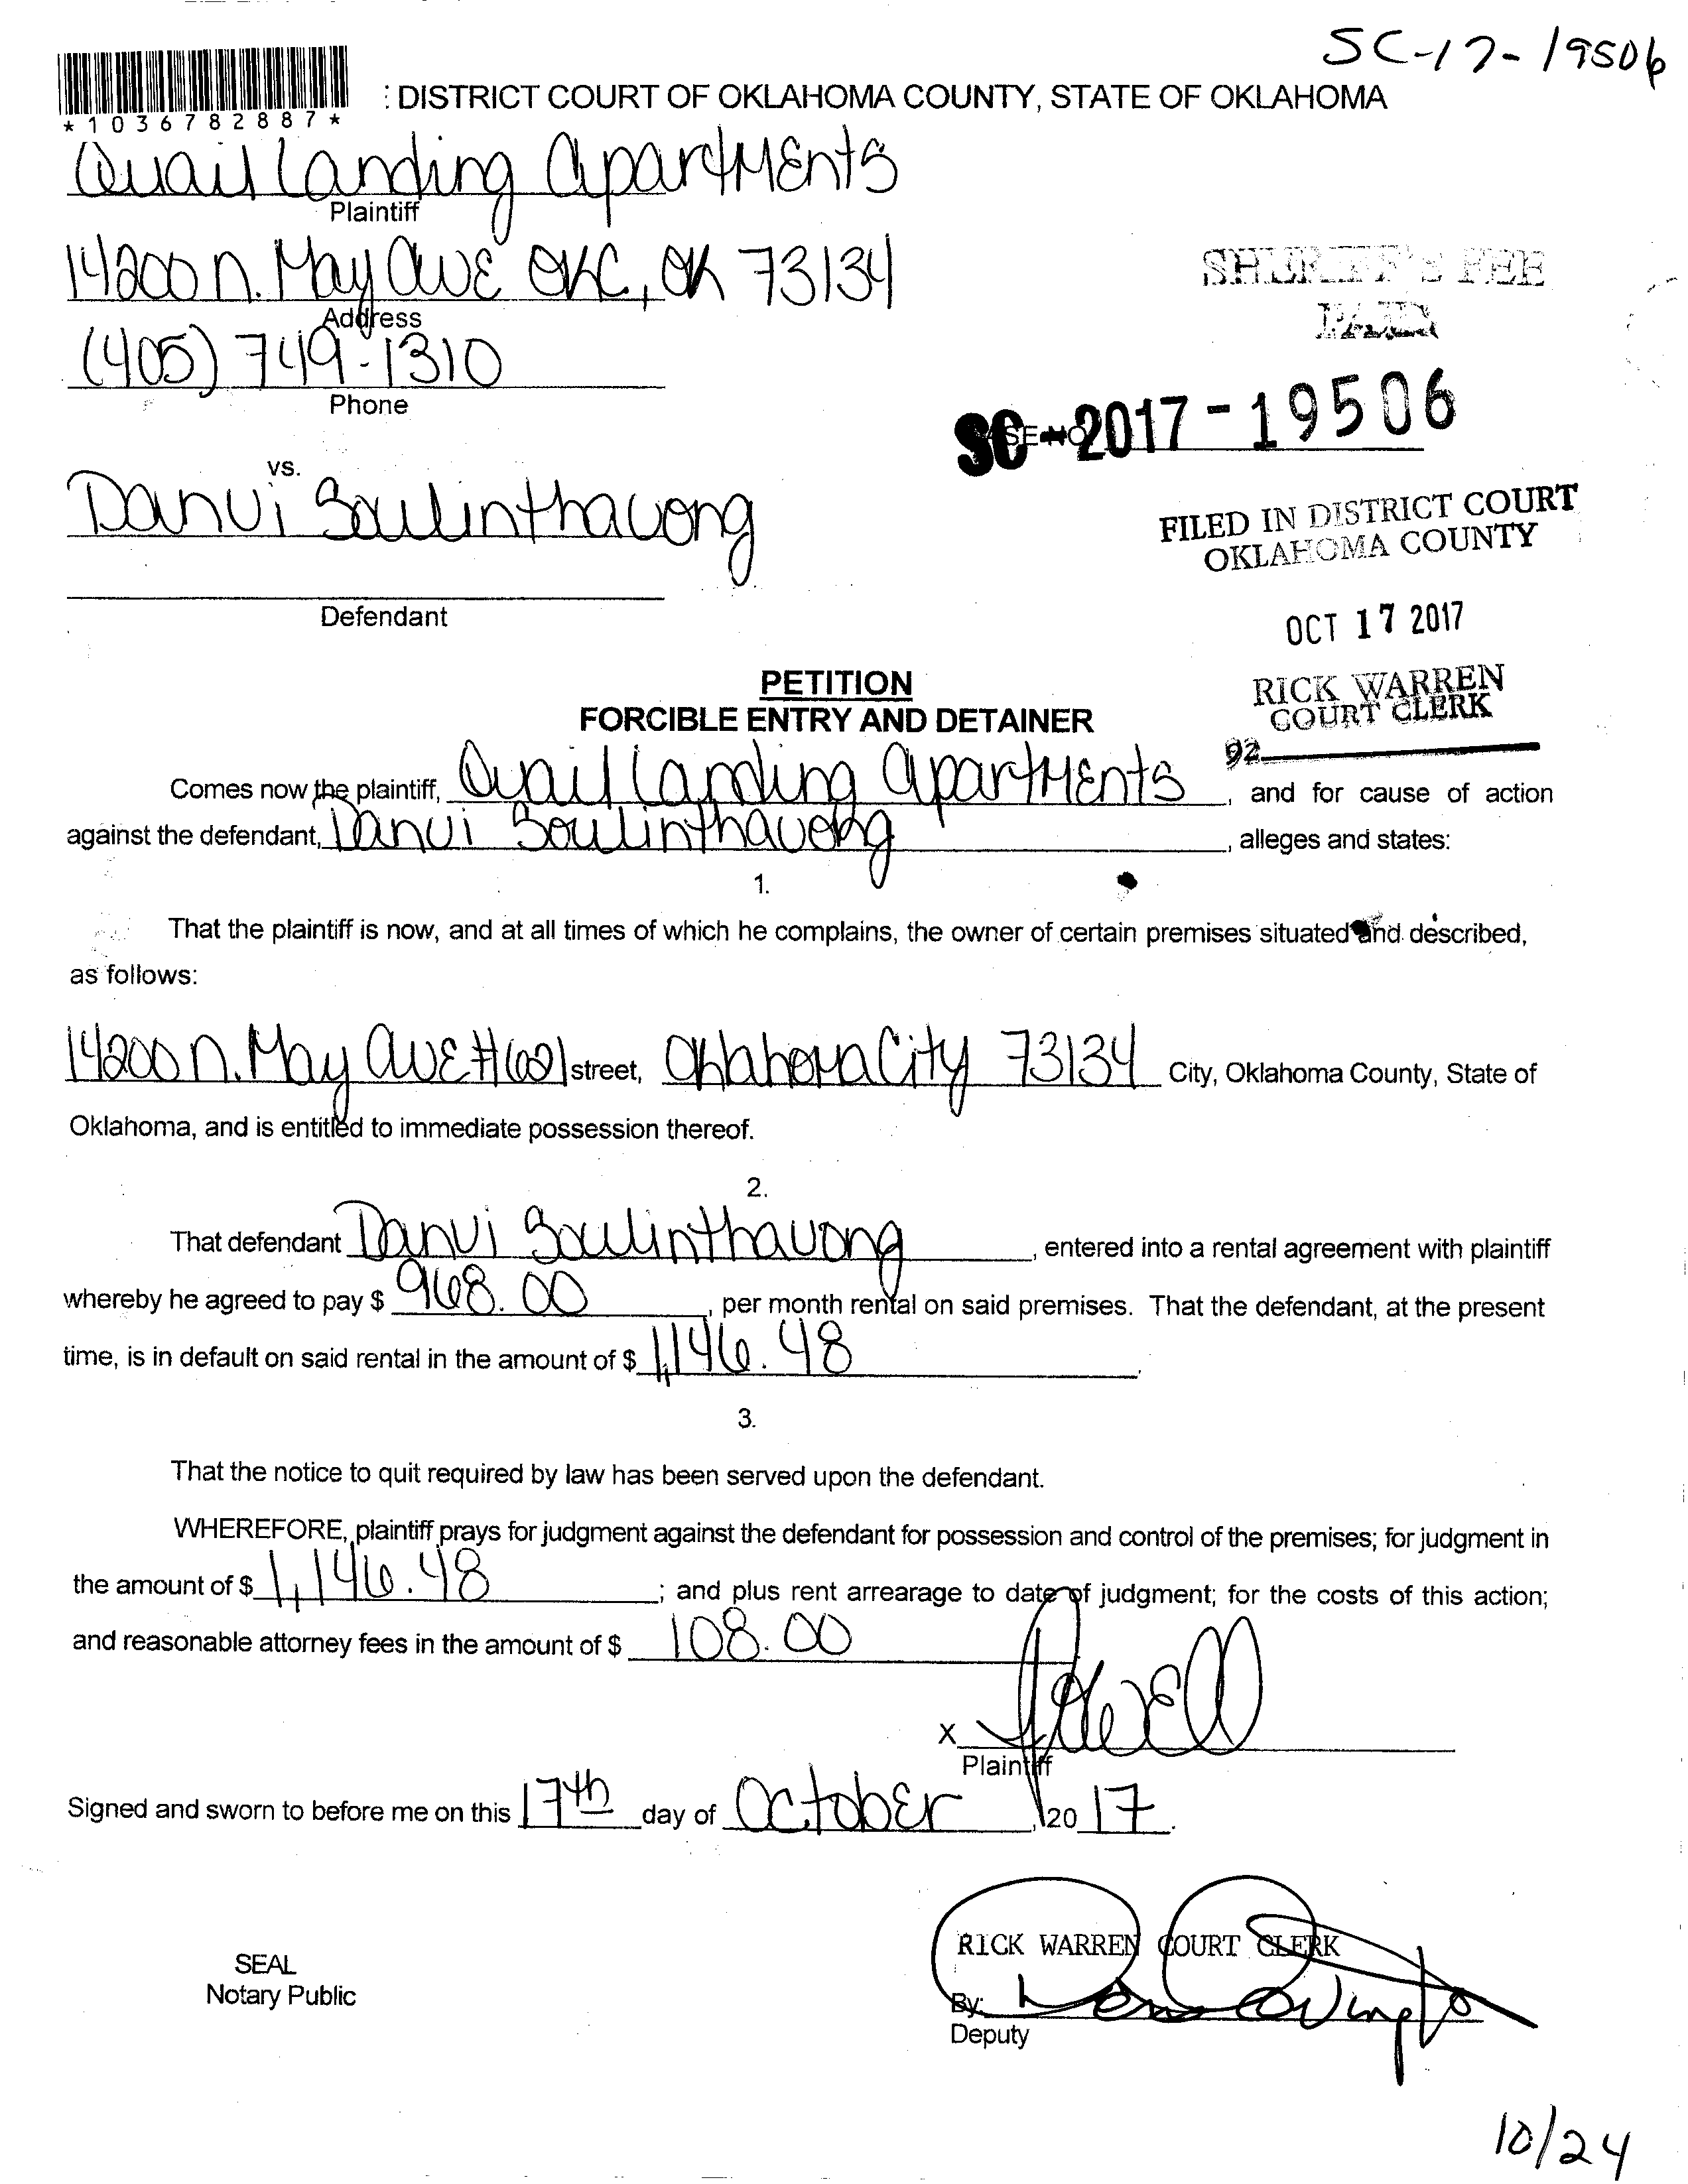 SC-17-19506
: DISTRICT COURT OF OKLAHOMA COUNTY, STATE OF OKLAHOMA
*1036782887*
Quail Landing Apartments
Plaintiff
14200 N. May Ave OKC, OK 73134
Address
(405) 749-1310
Phone
SHERIFF'S FEE
PAID
SC-2017-19506
vs.
Danvi Soulinthavong
Defendant
FILED IN DISTRICT COURT
OKLAHOMA COUNTY
OCT 17 2017
RICK WARREN
COURT CLERK
92
PETITION
FORCIBLE ENTRY AND DETAINER
Comes now the plaintiff, Quail Landing Apartments, and for cause of action
against the defendant, Danvi Soulinthavong, alleges and states:
1.
That the plaintiff is now, and at all times of which he complains, the owner of certain premises situated and described,
as follows:
14200 N. May Ave # street, Oklahoma City 73134 City, Oklahoma County, State of
Oklahoma, and is entitled to immediate possession thereof.
2.
That defendant Danvi Soulinthavong, entered into a rental agreement with plaintiff
whereby he agreed to pay $ 968.00, per month rental on said premises. That the defendant, at the present
time, is in default on said rental in the amount of $ 1,146.48.
3.
That the notice to quit required by law has been served upon the defendant.
WHEREFORE, plaintiff prays for judgment against the defendant for possession and control of the premises; for judgment in
the amount of $ 1,146.48; and plus rent arrearage to date of judgment; for the costs of this action;
and reasonable attorney fees in the amount of $ 108.00
X
Plaintiff
Signed and sworn to before me on this 17th day of October, 20 17.
SEAL
Notary Public
RICK WARREN COURT CLERK
By:
Deputy
10/24